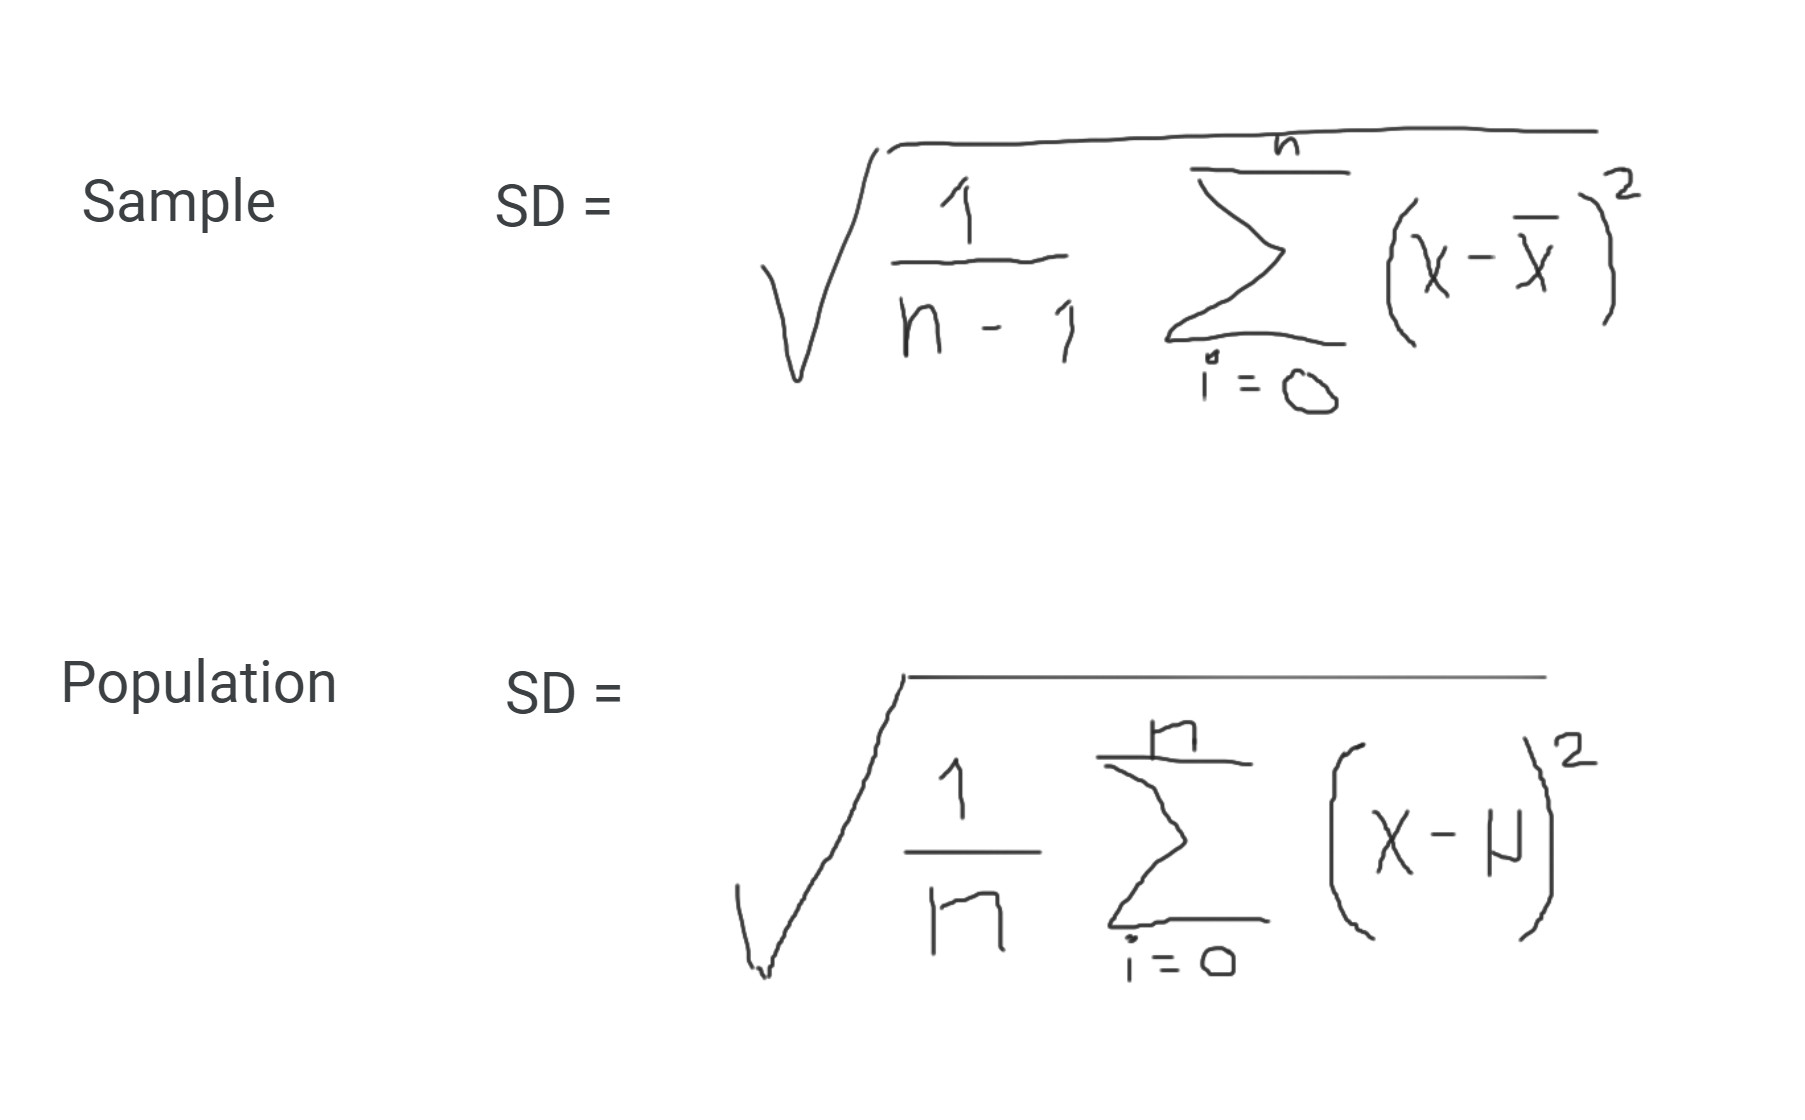 Sample SD = √(1/(n - 1) Σ_{i=0}^{n} (x - x̄)²)
Population SD = √(1/n Σ_{i=0}^{n} (x - μ)²)